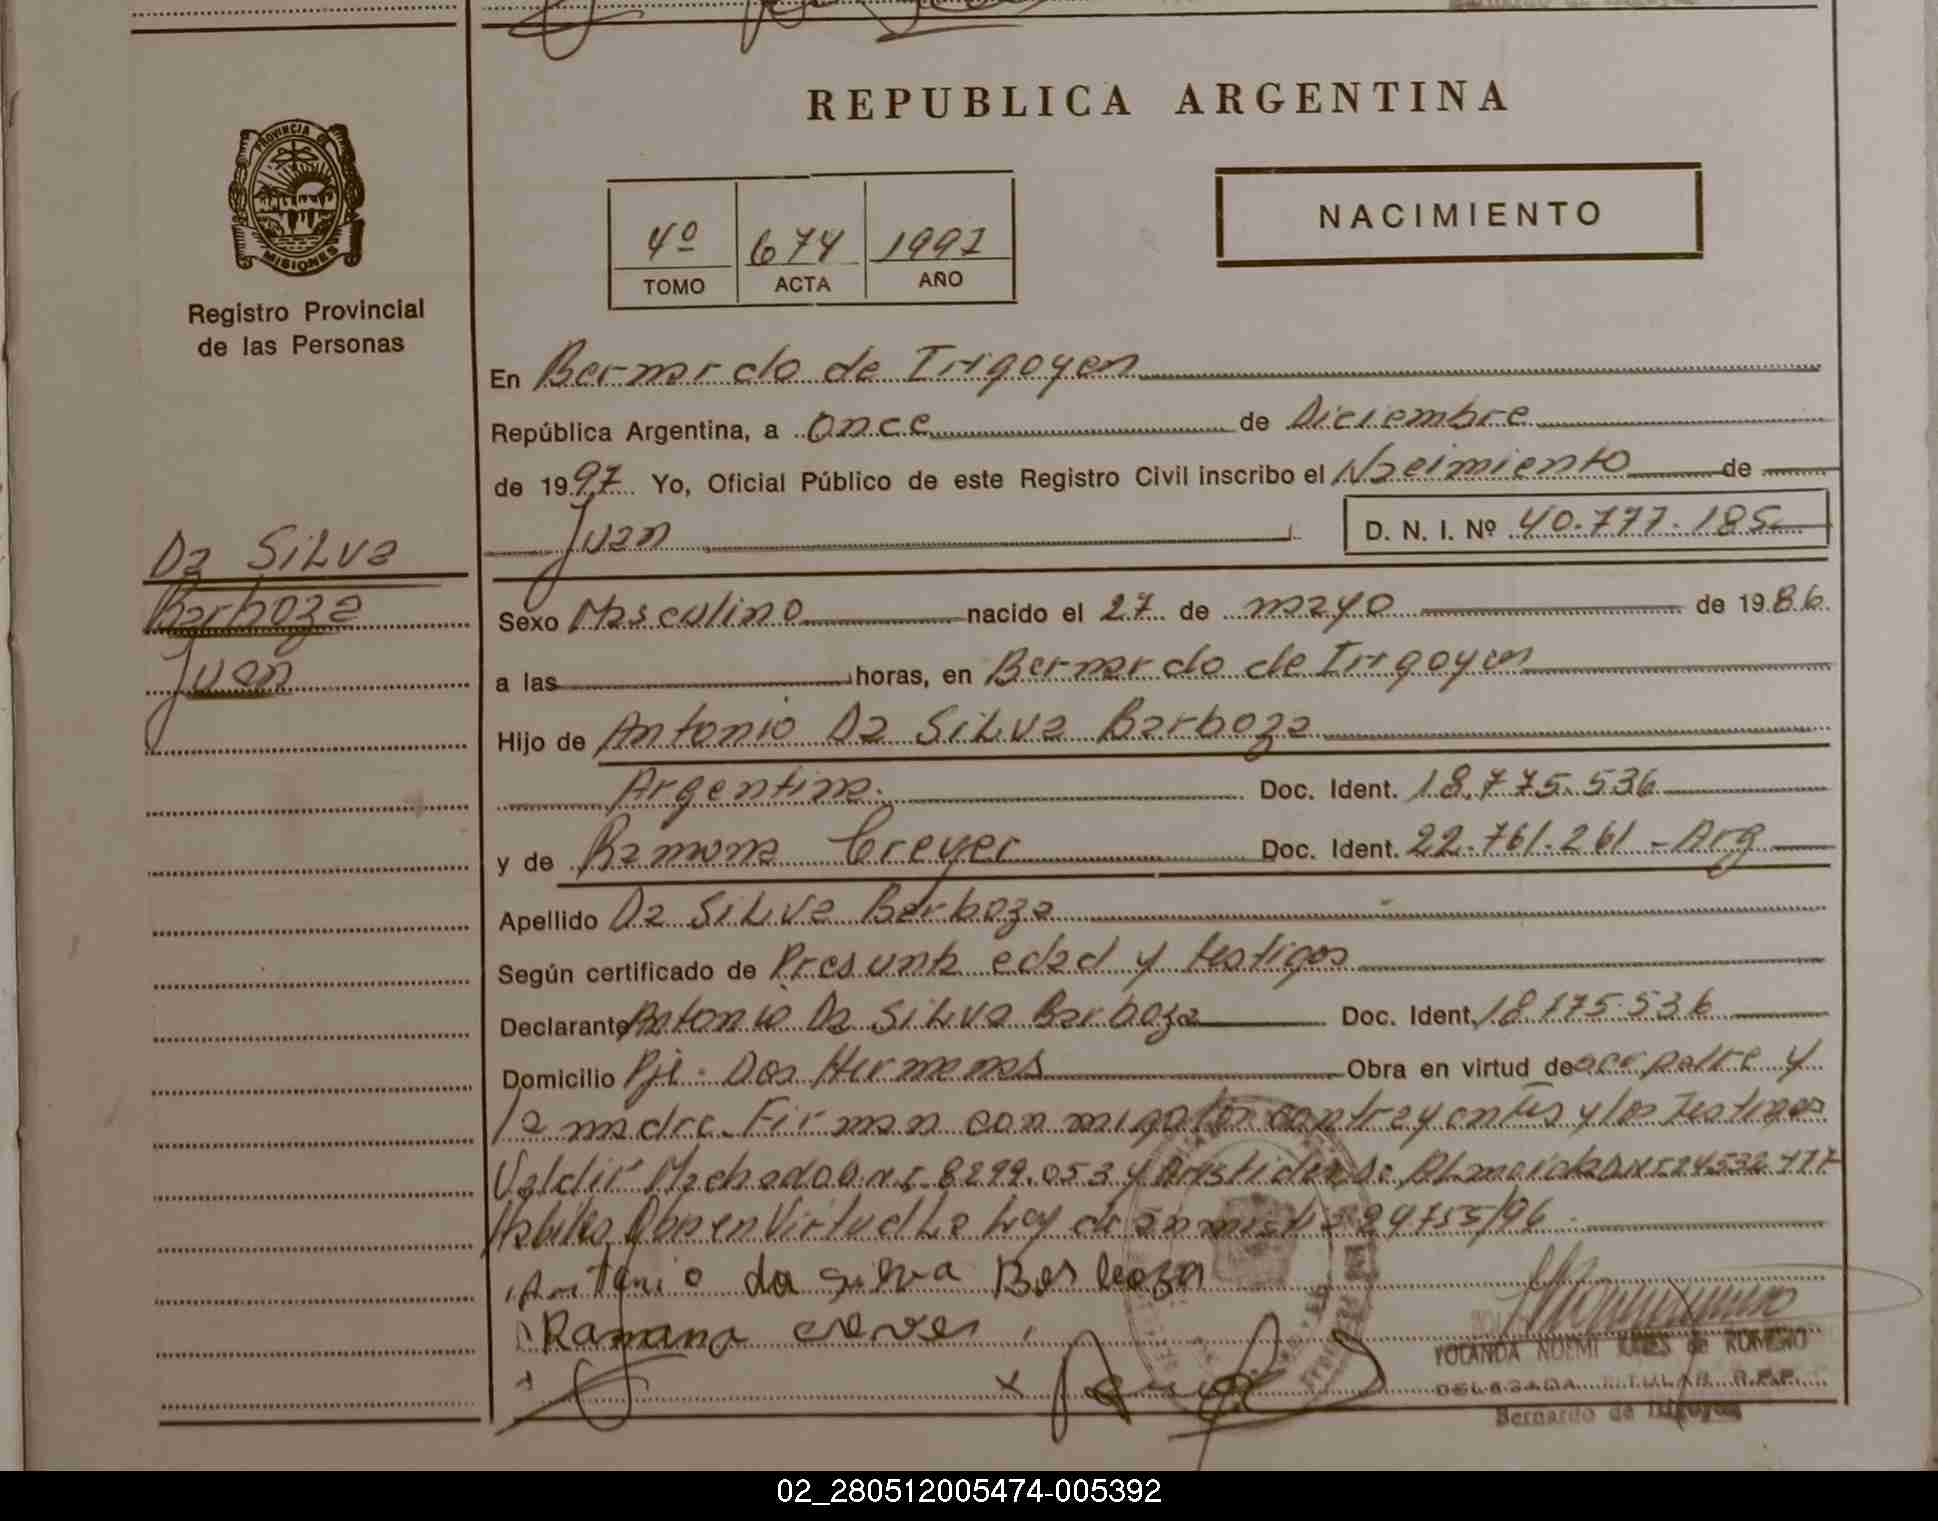 REPUBLICA ARGENTINA
PROVINCIA DE
MISIONES
Registro Provincial
de las Personas
4º 674 1997
TOMO ACTA AÑO
NACIMIENTO
En Bernardo de Irigoyen
República Argentina, a once de Diciembre
de 1997 Yo, Oficial Público de este Registro Civil inscribo el Nacimiento de
Juan
D. N. I. Nº 40.777.185
Da Silva
Barboza
Juan
Sexo Masculino nacido el 27 de mayo de 1986
a las horas, en Bernardo de Irigoyen
Hijo de Antonio Da Silva Barboza
Argentina. Doc. Ident. 18.775.536
y de Ramona Creyer Doc. Ident. 22.761.261 - Arg
Apellido Da Silva Barboza
Según certificado de Presunta edad y testigos
Declarante Antonio Da Silva Barboza Doc. Ident. 18.775.536
Domicilio Pje. Dos Hermanas Obra en virtud de ser padre y
la madre. Firman conmigo los contrayentes y los Testigos
Valdir Machado D.N.I. 8299.053 y Aristides De Almeida D.N.I. 24532777
Habiles Obra en Virtud La Ley de 24755/96
Antonio da Silva Barboza
Ramana
YOLANDA NOEMI de ROMERO
DELEGADA TITULAR R.P.P.
Bernardo de Irigoyen
02_280512005474-005392